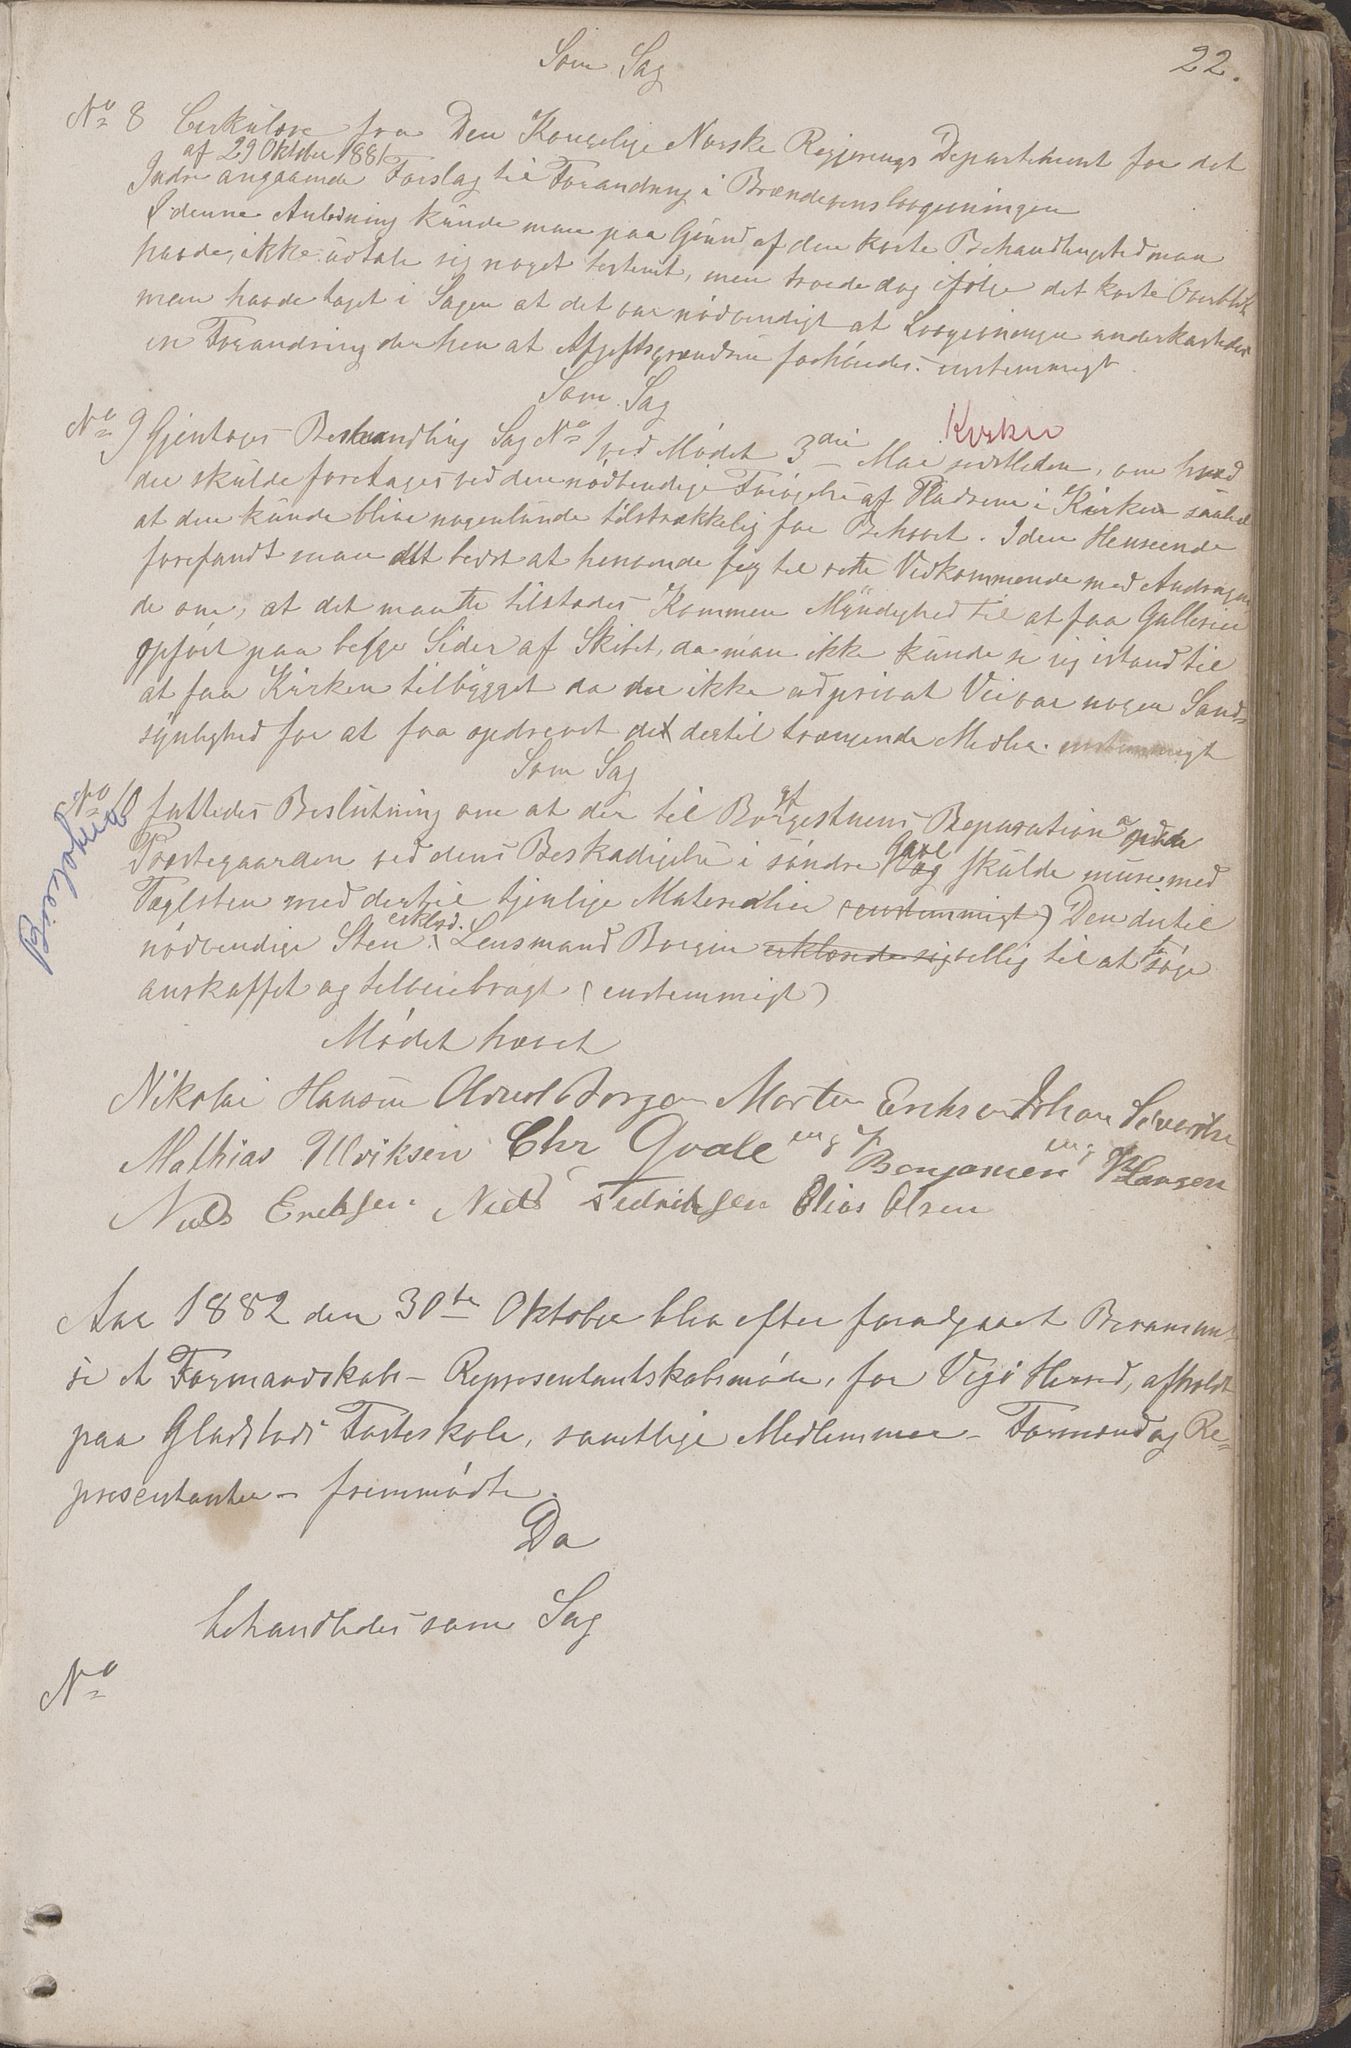 22.
Som Sag
No 8 Cirkulære fra Den Kongelige Norske Regjerings Departement for det
af 29 Oktober 1881
Indre angaaende Forslag til Forandring i Brændevinslovgivningen
I denne Anledning kunde man paa Grund af den korte Behandlingstid man
havde, ikke udtale sig noget bestemt, men troede dog ifølge det korte Overblik
man havde taget i Sagen at det var nødvendigt at Lovgivningen underkastedes
en Forandring derhen at Afgiftsgrændsen forhøiedes. enstemmigt
Som Sag
Kirken
No 9 Gjentoges Behandling Sag No 1 ved Mødet 3die Mai sidstleden, om hvad
der skulde foretages ved den nødvendige Forøgelse af Pladsene i Kirken saaled
at den kunde blive nogenlunde tilstrækkelig for Behovet. I den Henseende
forefandt man det bedst at henvende sig til rette Vedkommende med Andragen
de om, at det maatte tilstedes Kommen Myndighed til at faa Gallerier
opført paa begge Sider af Skibet, da man ikke kunde se sig istand til
at faa Kirken tilbygget da der ikke ad privat Vei var nogen Sand-
synlighed for at faa opdrevet det dertil trængende Midler. enstemmigt
Som Sag
No 10 fattedes Beslutning om at der til Borgestuens Reparation paa
Præstegaarden ved dens Beskadigelse i søndre Gavl skulde mures med
Teglsten med dertil tjenlige Materialier (enstemmigt) Den dertil
nødvendige Sten erklærd. Lensmand Borgen erklærede sig villig til at søge
anskaffet og tilveiebragt (enstemmigt)
Borgestuen
Mødet hævet
Nikolai Hansen Olved Borgen Morten Eriksen Johan Sivertsen
Mathias Ulriksen Chr Qvale Benjamin Hansen
Niels Eriksen Niels Fedriksen Elias Olsen
Aar 1882 den 30te Oktober blev efter foradgaaet Berammel
se et Formandskabs- Representantskabsmøde, for Vegø Herred, afholdt
paa Gladstads Fasteskole, samtlige Medlemmer - Formænd og Re-
presentanter - fremmødte.
Da
behandledes som Sag
No